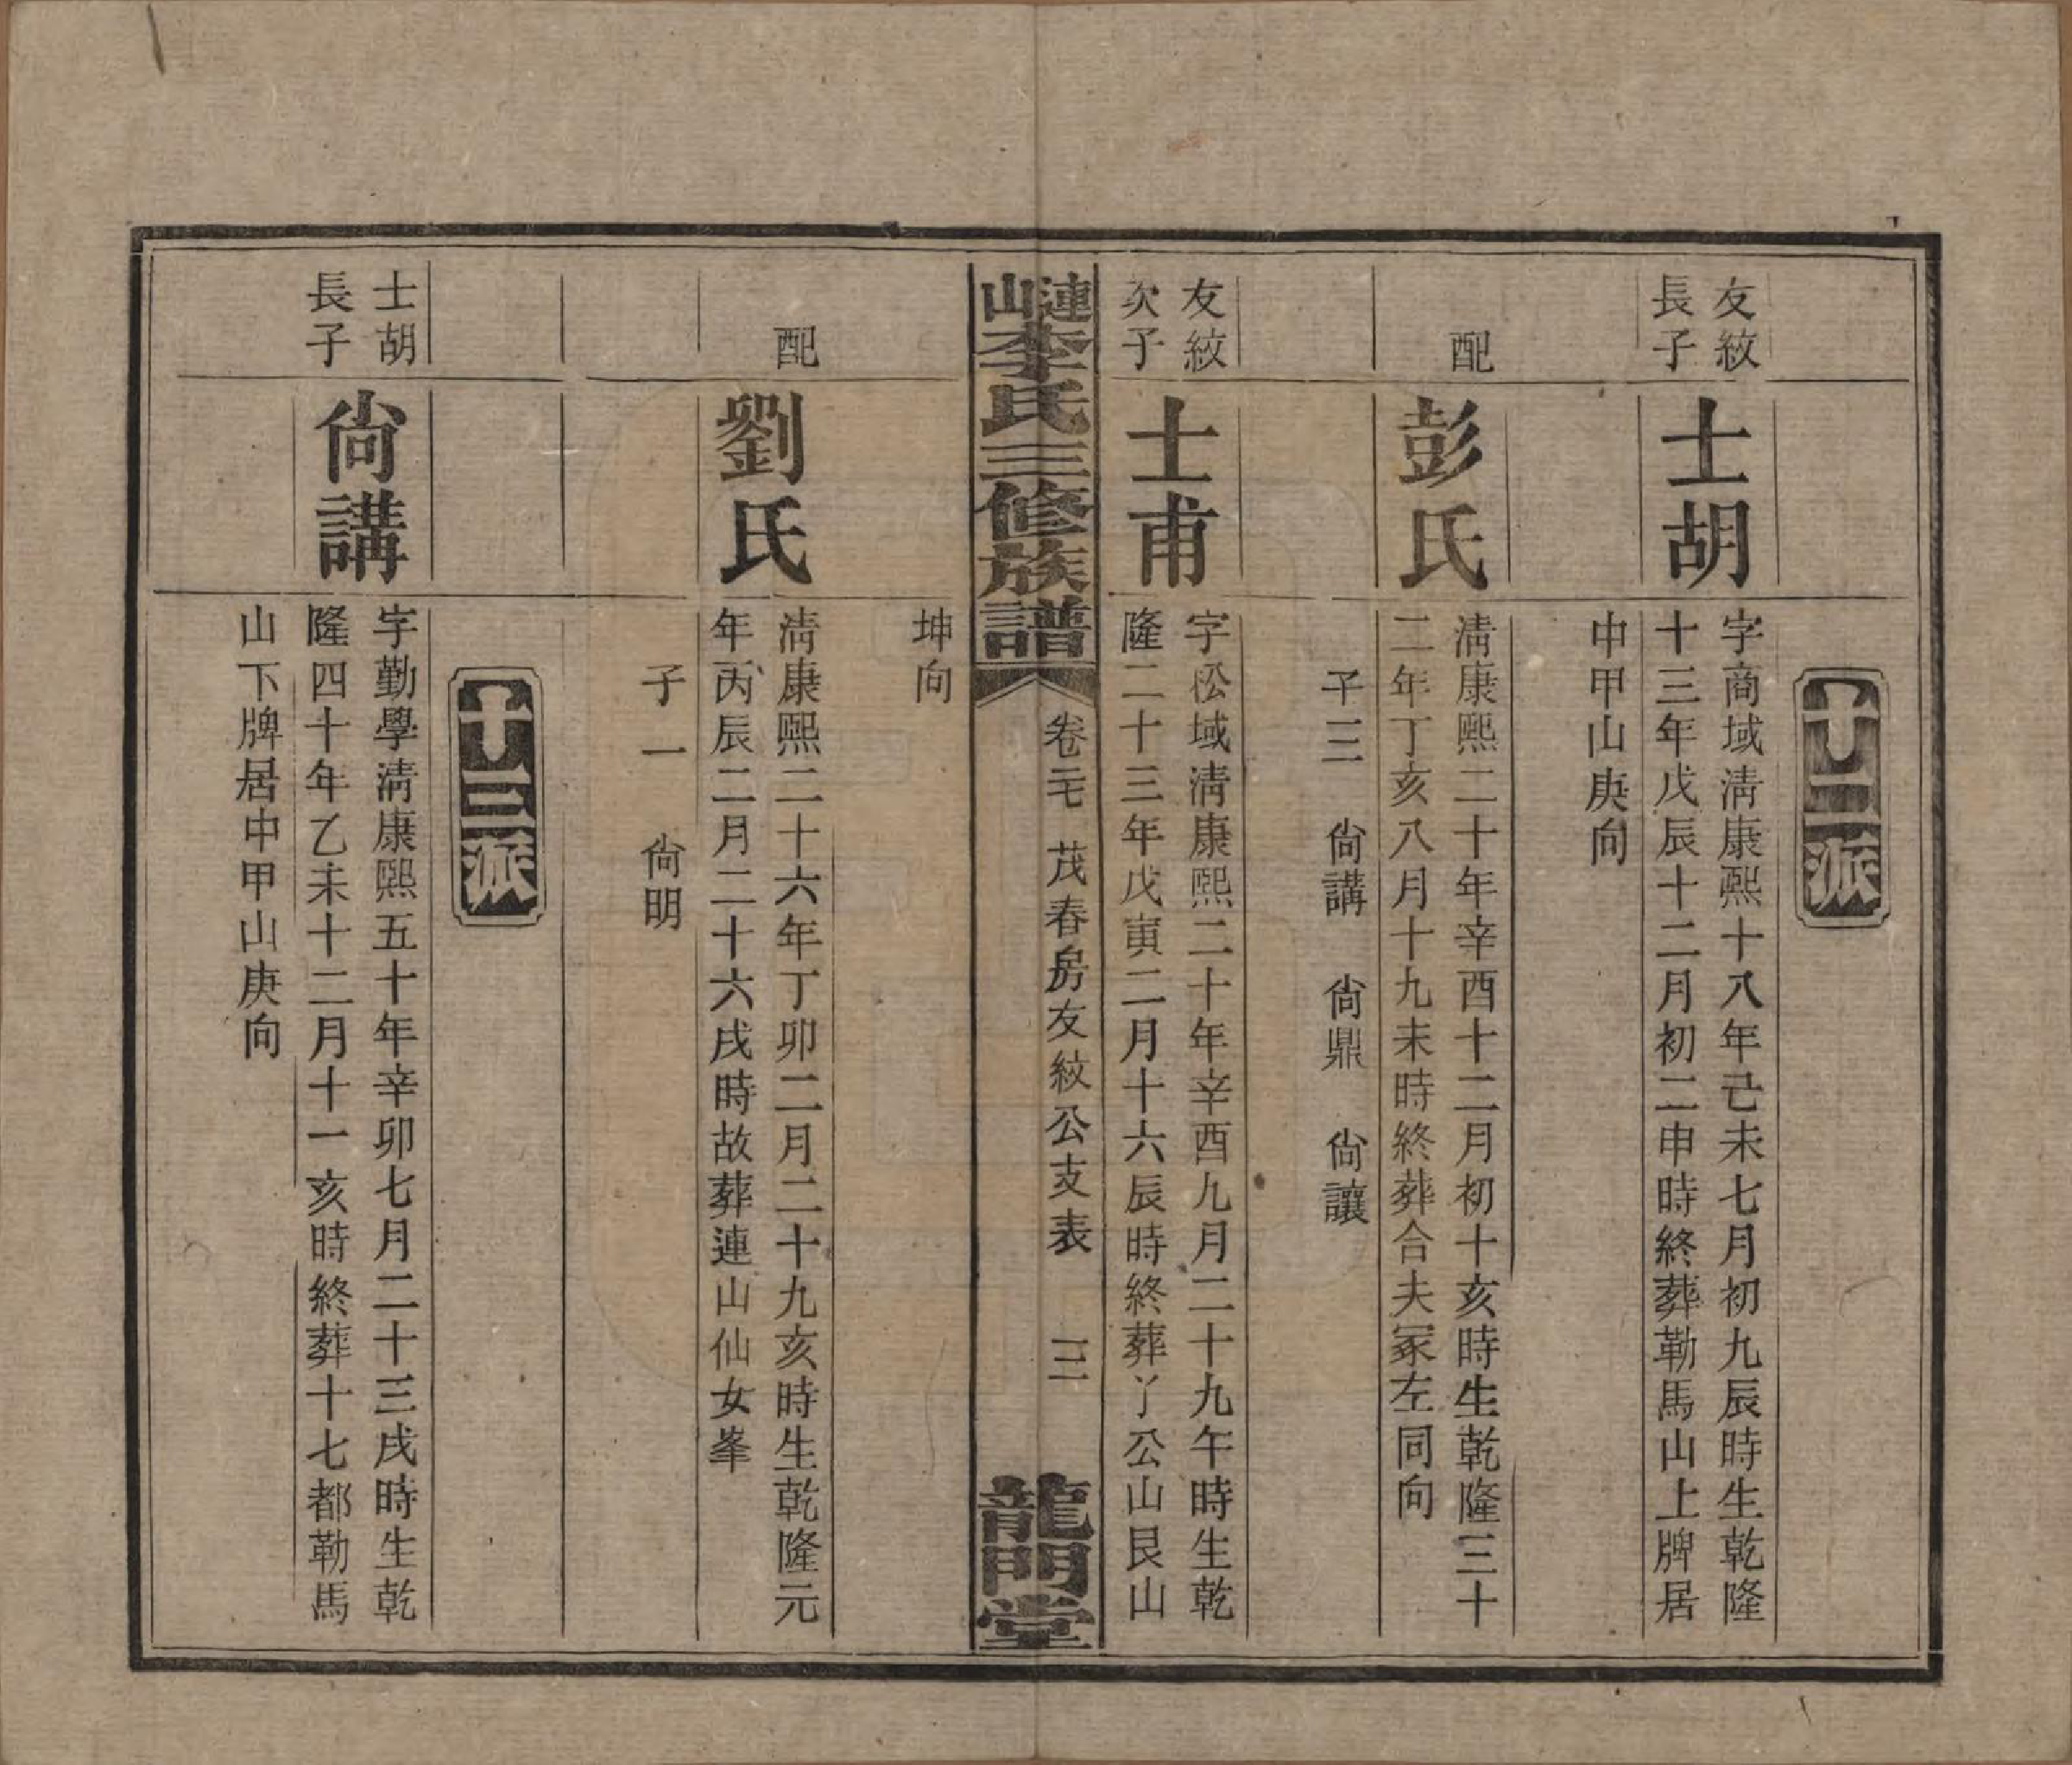 十二派
友紋
長子
士胡
字商域清康熙十八年己未七月初九辰時生乾隆
十三年戊辰十二月初二申時終葬勒馬山上牌居
中甲山庚向
配
彭氏
清康熙二十年辛酉十二月初十亥時生乾隆三十
二年丁亥八月十九未時終葬合夫冢左同向
子三 尙講 尙鼎 尙讓
友紋
次子
士甫
字松域清康熙二十年辛酉九月二十九午時生乾
隆二十三年戊寅二月十六辰時終葬丫公山艮山
坤向
連山李氏三修族譜
卷二 茂春房友紋公支表 三
龍門堂
配
劉氏
清康熙二十六年丁卯二月二十九亥時生乾隆元
年丙辰二月二十六戌時故葬連山仙女峯
子一 尙明
十三派
士胡
長子
尙講
字勤學清康熙五十年辛卯七月二十三戌時生乾
隆四十年乙未十二月十一亥時終葬十七都勒馬
山下牌居中甲山庚向